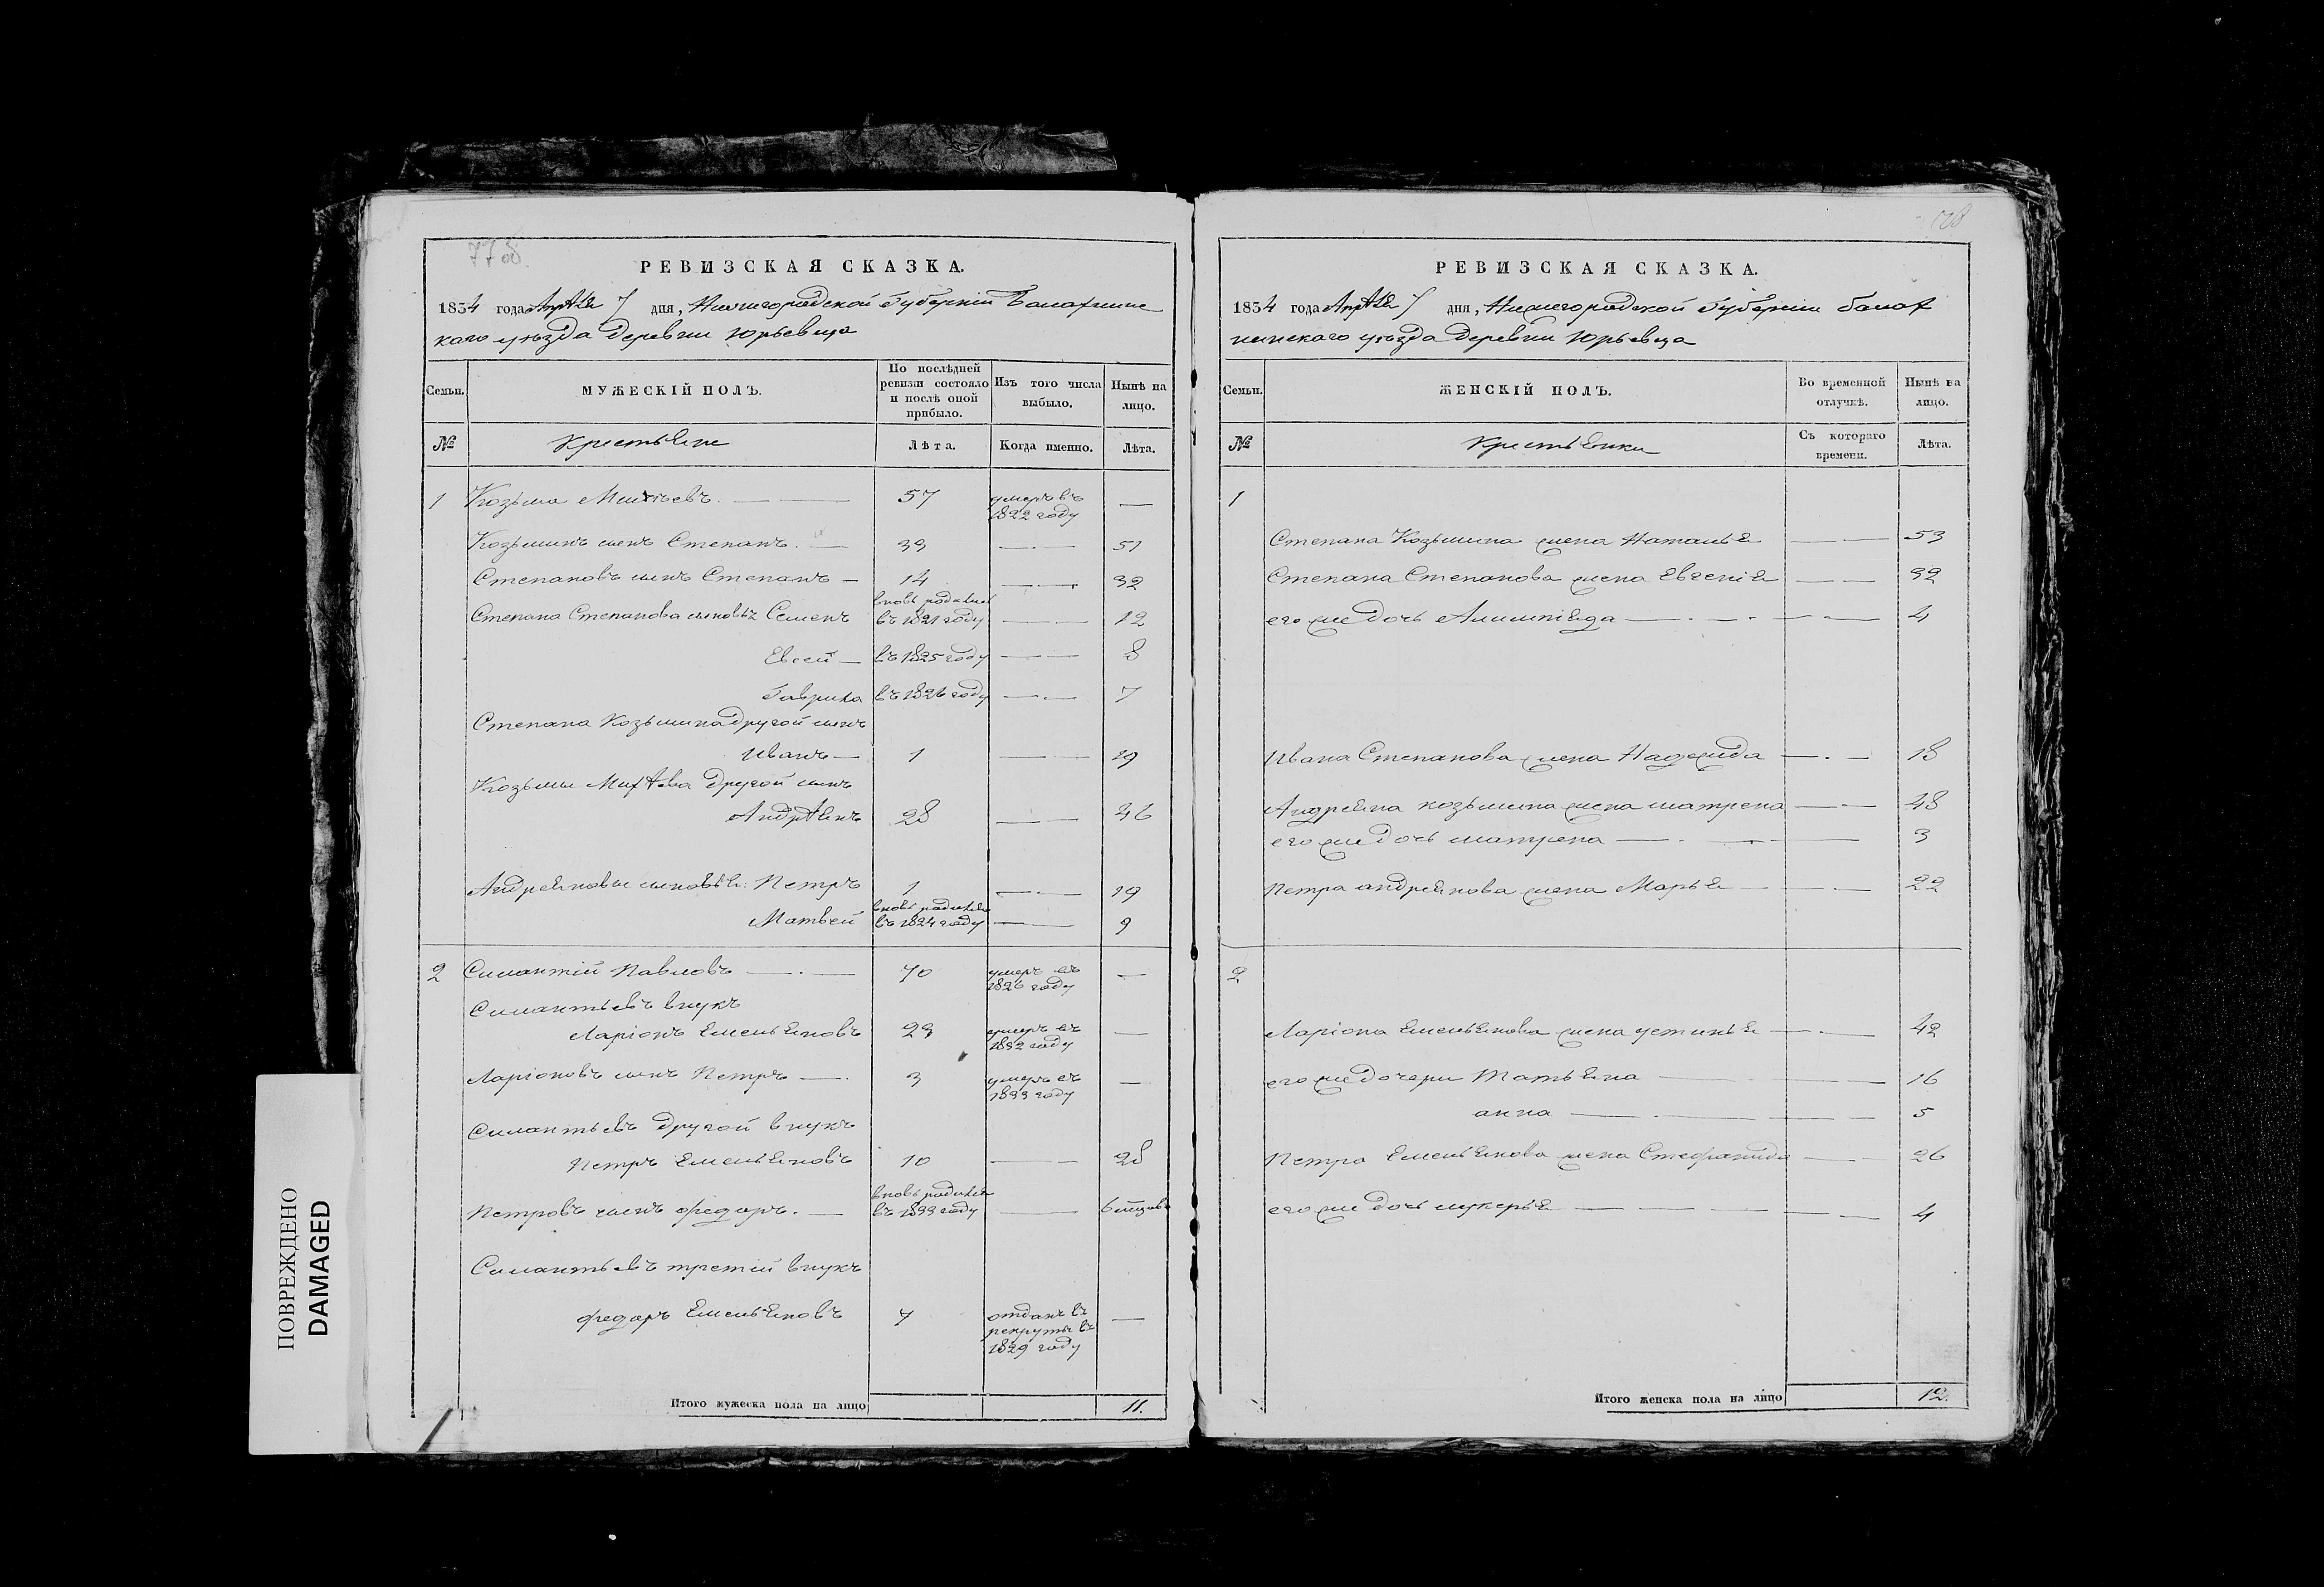 77 об.
РЕВИЗСКАЯ СКАЗКА.
1834 года Апрѣля 7 дня, Нижегородской Губерніи Балахнинс
каго уѣзда Деревни Юрьевца
Семьи. МУЖЕСКІЙ ПОЛЪ. По послѣдней ревизіи состояло и послѣ оной прибыло. Изъ того числа выбыло. Нынѣ на лицо.
№ Крестьяне Лѣта. Когда именно. Лѣта.
1 Козьма Михѣевъ. — 57 умеръ въ 1822 году —
Козьминъ сынъ Степанъ. — 33 — 51
Степановъ сынъ Степанъ — 14 — 32
Степана Степанова сыновья Семенъ вновь родился въ 1821 году — 12
Евсей — въ 1825 году — 8
Гаврила въ 1826 году — 7
Степана Козьмина другой сынъ
Иванъ — 1 — 19
Козьмы Михѣева другой сынъ
Андрѣянъ 28 — 46
Андреяновы сыновья: Петръ 1 — 19
Матвей вновь родился въ 1824 году — 9
2 Силантій Павловъ — 70 умеръ въ 1826 году —
Силантьевъ внукъ
Ларіонъ Емельяновъ 23 умеръ въ 1832 году —
Ларіоновъ сынъ Петръ — 3 умеръ въ 1833 году —
Силантьевъ другой внукъ
Петръ Емельяновъ 10 — 28
Петровъ сынъ Федоръ. — вновь родился въ 1833 году — 6
Силантьевъ третій внукъ
Федоръ Емельяновъ 7 отданъ въ рекруты въ 1829 году —
Итого мужеска пола на лицо 11.
РЕВИЗСКАЯ СКАЗКА.
1834 года Апрѣля 7 дня, Нижегородской Губерніи балах
нинскаго уѣзда Деревни Юрьевца
Семьи. ЖЕНСКІЙ ПОЛЪ. Во временной отлучкѣ. Нынѣ на лицо.
№ Крестьянки Съ котораго времени. Лѣта.
1
Степана Козьмина жена Наталья — 53
Степана Степанова жена Евгенія — 32
его же дочь — 4
Ивана Степанова жена Надежда — 18
Андреяна козьмина жена матрена — 48
его же дочь матрена — 3
Петра андреянова жена Марья — 22
2
Ларіона Емельянова жена устинья — 42
его же дочери Татьяна — 16
анна — 5
Петра Емельянова жена Стефанида — 26
его же дочь лукерья — 4
Итого женска пола на лицо 12.
ПОВРЕЖДЕНО
DAMAGED